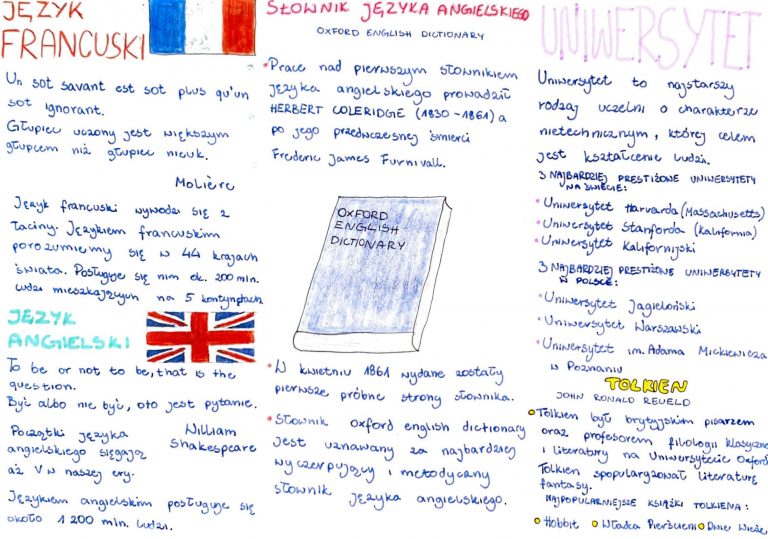 JĘZYK
FRANCUSKI
Un sot savant est sot plus qu'un
sot ignorant.
Głupiec uczony jest większym
głupcem niż głupiec nieuk.
Molière
Język francuski wywodzi się z
łaciny. Językiem francuskim
porozumiemy się w 44 krajach
świata. Posługuje się nim ok. 200 mln.
ludzi mieszkających na 5 kontynętach
JĘZYK
ANGIELSKI
To be or not to be, that is the
question.
Być albo nie być, oto jest pytanie.
William
Shakespeare
Początki języka
angielskiego sięgają
aż V w naszej ery.
Językiem angielskim posługuje się
około 1 200 mln. ludzi.
SŁOWNIK JĘZYKA ANGIELSKIEGO
OXFORD ENGLISH DICTIONARY
Prace nad pierwszym słownikiem
języka angielskiego prowadził
HERBERT COLERIDGE (1830-1861) a
po jego przedwczesnej śmierci
Frederic James Furnivall.
OXFORD
ENGLISH
DICTIONARY
W kwietniu 1861 wydane zostały
pierwsze próbne strony słownika.
Słownik Oxford english dictionary
jest uznawany za najbardziej
wyczerpujący i metodyczny
słownik języka angielskiego.
UNIWERSYTET
Uniwersytet to najstarszy
rodzaj uczelni o charakterze
nietechnicznym, której celem
jest kształcenie ludzi.
3 NAJBARDZIEJ PRESTIŻOWE UNIWERSYTETY
NA ŚWIECIE:
Uniwersytet Harvarda (Massachusetts)
Uniwersytet Stanforda (Kalifornia)
Uniwersytet Kalifornijski
3 NAJBARDZIEJ PRESTIŻOWE UNIWERSYTETY
W POLSCE:
Uniwersytet Jagieloński
Uniwersytet Warszawski
Uniwersytet im. Adama Mickiewicza
w Poznaniu
TOLKIEN
JOHN RONALD REUELD
Tolkien był brytyjskim pisarzem
oraz profesorem filologii klasycznej
i literatury na Uniwersytecie Oxford
Tolkien spopularyzował literaturę
fantasy.
NAJPOPULARNIEJSZE KSIĄŻKI TOLKIENA:
Hobbit Władca Pierścieni Dwie Wieże